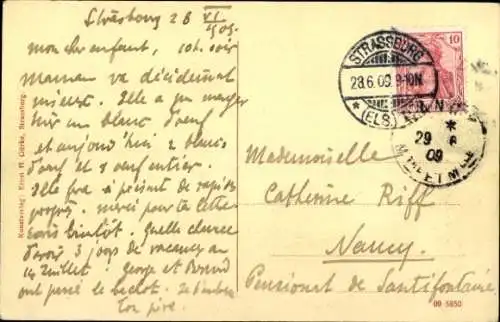 Strasbourg 28 VI 1909.
mon cher enfant, ce soir
maman va décidément
mieux. Elle a pu manger
hier un blanc d'oeuf
et aujourd'hui 2 blancs
d'oeuf et 1 oeuf entier.
Elle fera à présent de rapides
progrès. merci pour ta lettre
à bientôt. Quelle chance
d'avoir 3 jours de vacances au
14 Juillet! George et
ont passé le bachot.
ton père.
Mademoiselle
Catherine Riff
Nancy.
Pensionnat de Santifontaine
STRASSBURG
28.6.09. 9-10N.
* (ELS.)
10
29 6
09
Kunstverlag: Ernst H. Clärke, Strassburg.
09 5850